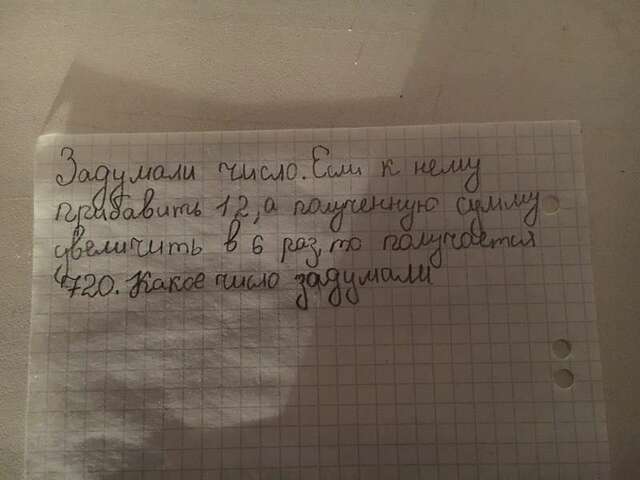 Задумали число. Если к нему
прибавить 12, а полученную сумму
увеличить в 6 раз, то получается
720. Какое число задумали